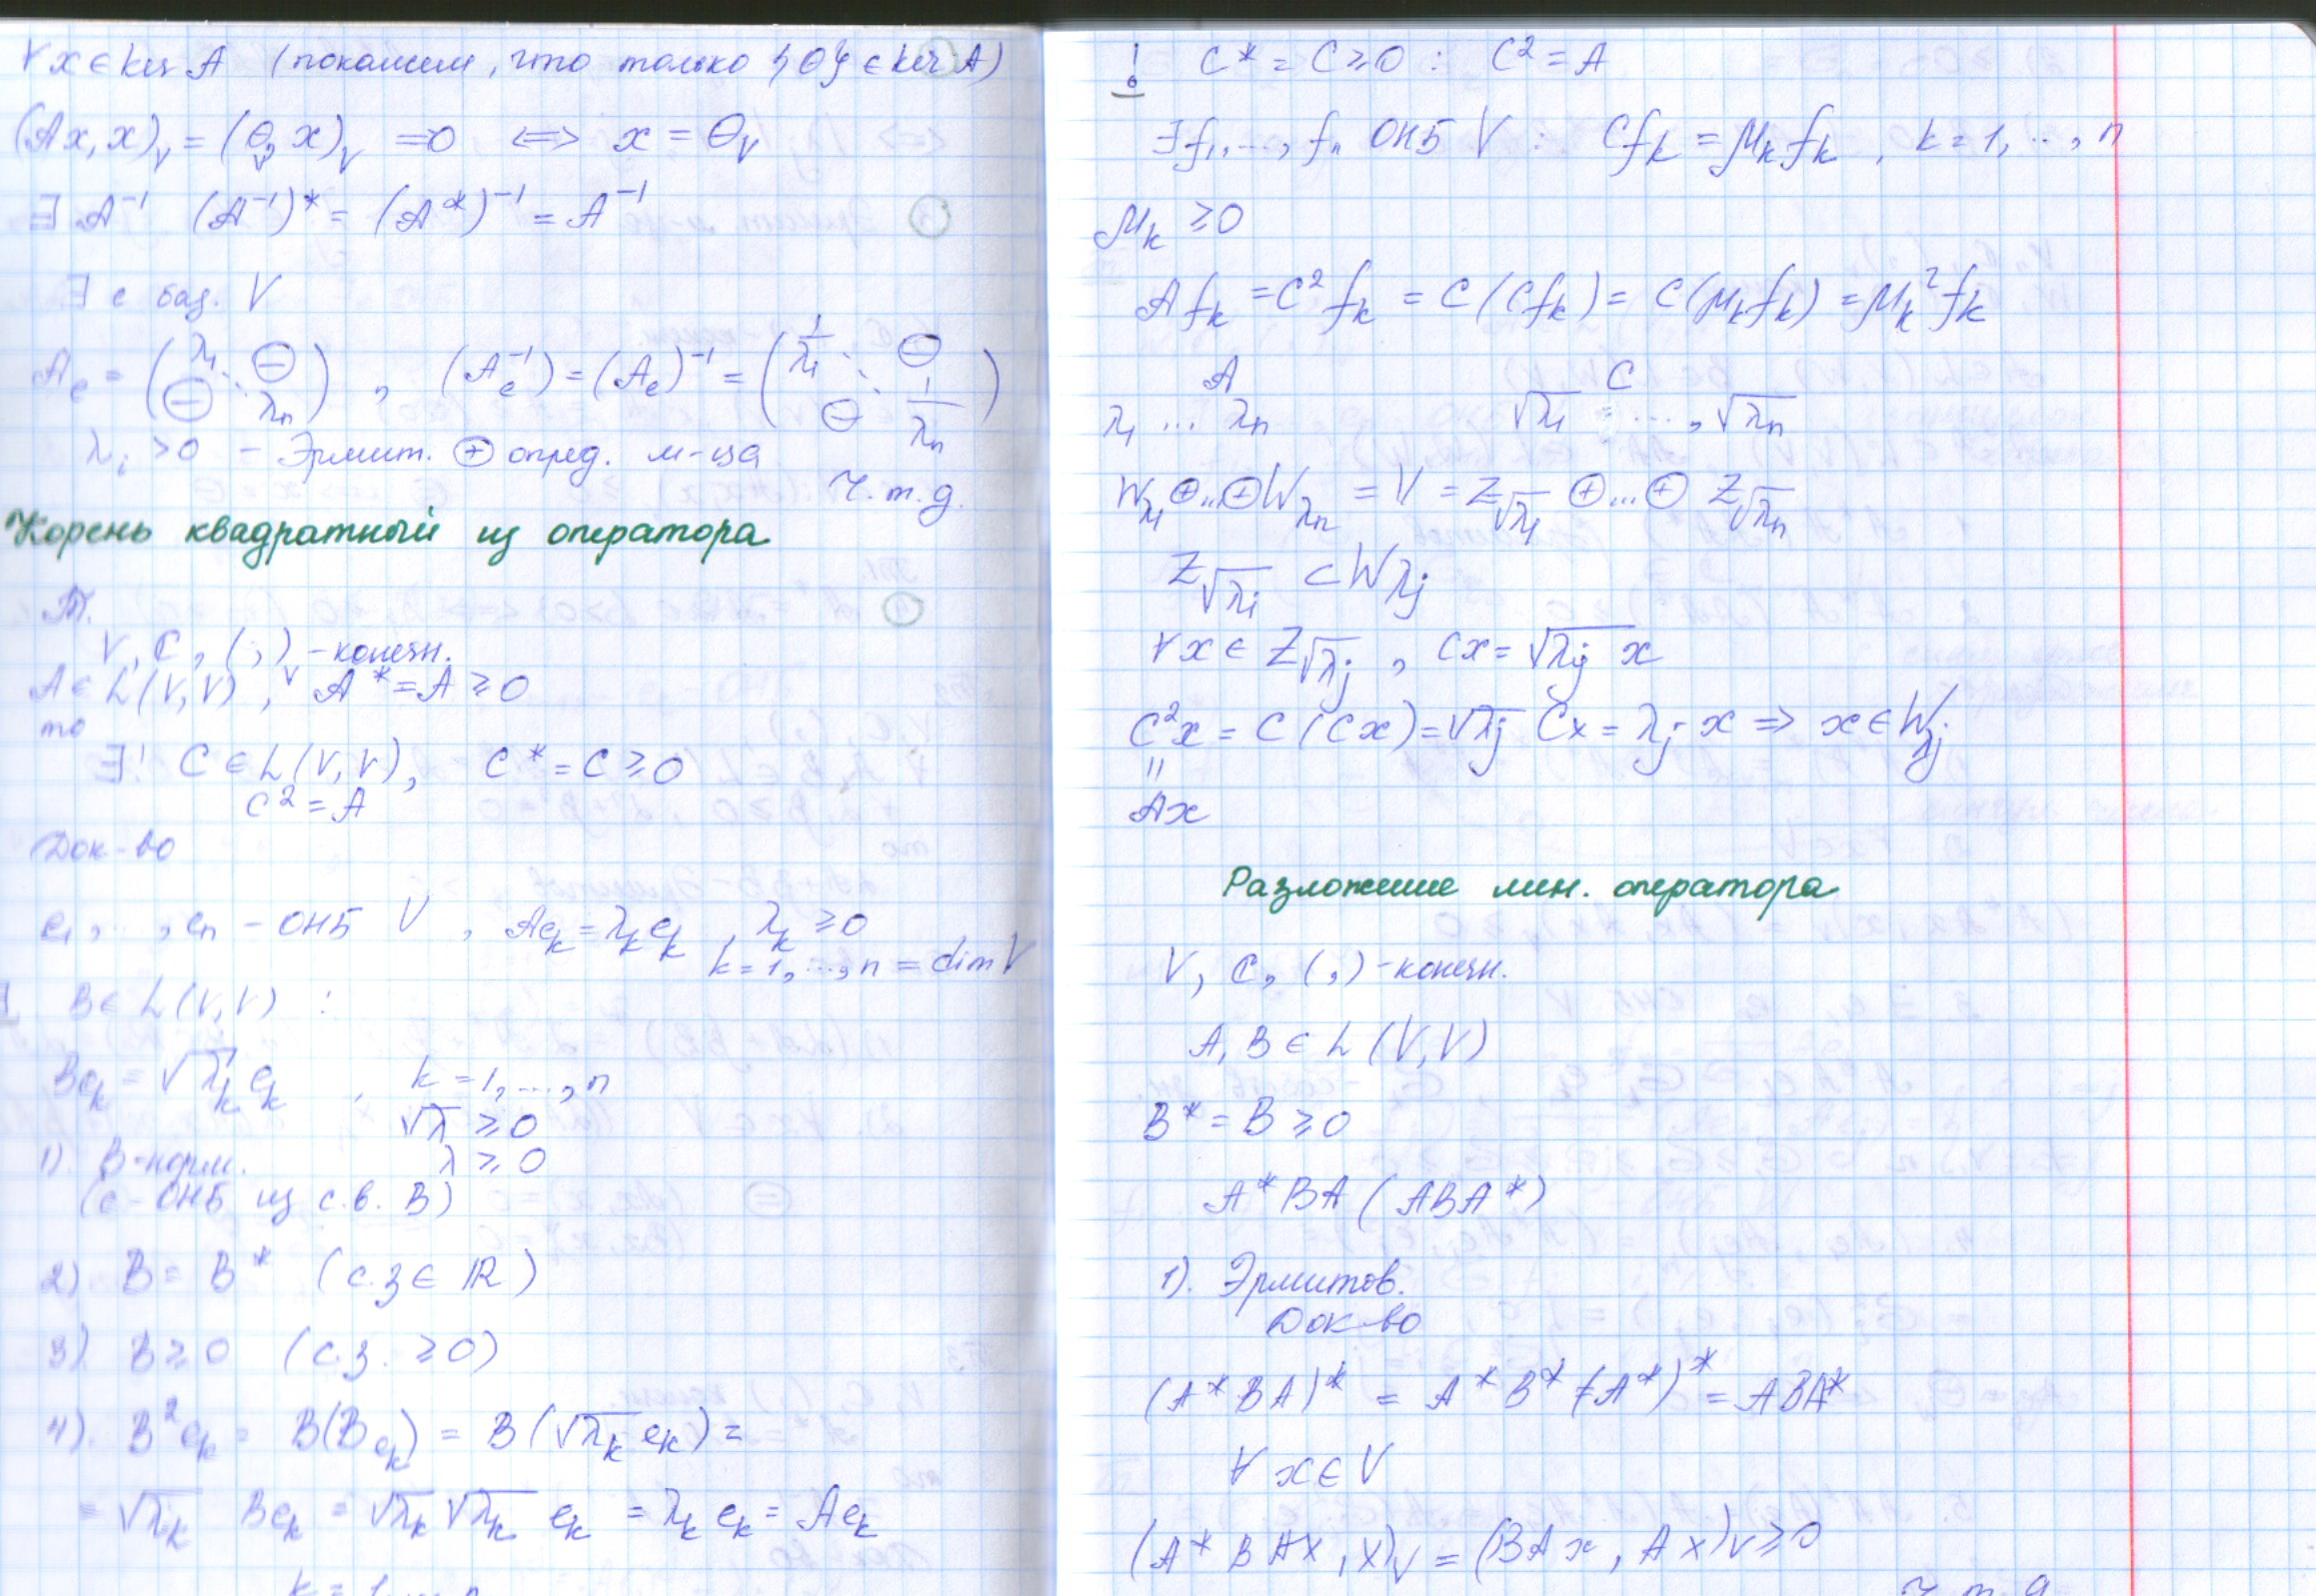 ∀x∈ker A (покажем, что только {θ}∈ker A)
(Ax,x)_V = (θ_V, x)_V = 0 ⟺ x = θ_V
∃ A⁻¹ (A⁻¹)* = (A*)⁻¹ = A⁻¹
∃ e баз. V
A_e = (λ₁ ⋱ λₙ), (A_e⁻¹) = (A_e)⁻¹ = (1/λ₁ ⋱ 1/λₙ)
λᵢ > 0 – Эрмит. ⊕ опред. м-ца
Ч.т.д.
Корень квадратный из оператора
Т.
V, C, (,)_V – конечн.
A∈L(V,V), A* = A ≥ 0
то
∃! C∈L(V,V), C* = C ≥ 0
C² = A
Док-во
e₁, ..., eₙ – ОНБ V, Ae_k = λ_k e_k, λ_k ≥ 0
k = 1, ..., n = dim V
∃ B∈L(V,V) :
Be_k = √λ_k e_k, k = 1, ..., n
√λ ≥ 0
1). B – норм. λ ≥ 0
(e – ОНБ из с.в. B)
2) B = B* (с.з ∈ ℝ)
3) B ≥ 0 (с.з. ≥ 0)
4). B²e_k = B(Be_k) = B(√λ_k e_k) =
= √λ_k Be_k = √λ_k √λ_k e_k = λ_k e_k = Ae_k
! C* = C ≥ 0 : C² = A
∃ f₁, ..., fₙ ОНБ V : Cf_k = μ_k f_k, k = 1, ..., n
μ_k ≥ 0
Af_k = C²f_k = C(Cf_k) = C(μ_k f_k) = μ_k² f_k
A C
λ₁ ... λₙ √λ₁ ..., √λₙ
W_λ₁ ⊕...⊕ W_λₙ = V = Z_√λ₁ ⊕...⊕ Z_√λₙ
Z_√λⱼ ⊂ W_λⱼ
∀x∈Z_√λⱼ, Cx = √λⱼ x
C²x = C(Cx) = √λⱼ Cx = λⱼ x ⟹ x∈W_λⱼ
॥
Ax
Разложение лин. оператора
V, C, (,) – конечн.
A, B∈L(V,V)
B* = B ≥ 0
A*BA (ABA*)
1). Эрмитов.
Док-во
(A*BA)* = A*B*(A*)* = ABA*
∀ x∈V
(A*BAx, x)_V = (BAx, Ax)_V ≥ 0